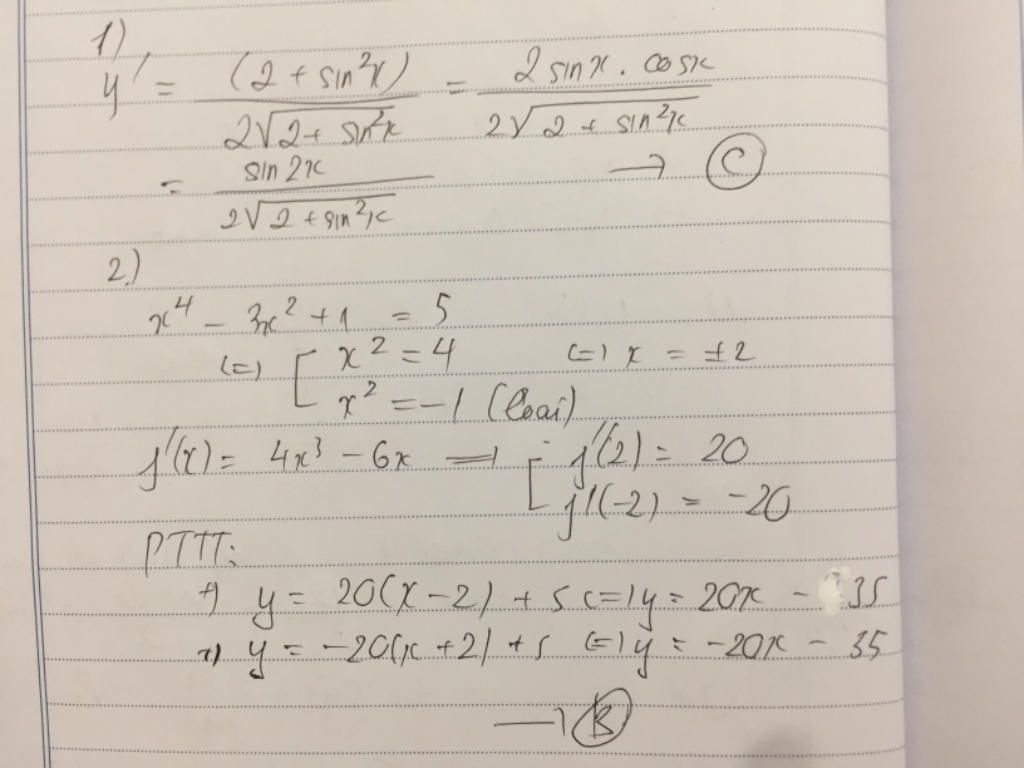 1)
y' = (2 + sin²x) / 2√(2 + sin²x) = 2 sinx . cosx / 2√(2 + sin²x)
= sin 2x / 2√(2 + sin²x) → C
2.)
x⁴ - 3x² + 1 = 5
(=) [ x² = 4 (=) x = ±2
x² = -1 (loại)
f'(x) = 4x³ - 6x => [ f'(2) = 20
f'(-2) = -20
PTTT:
+) y = 20(x - 2) + 5 (=) y = 20x - 35
+) y = -20(x + 2) + 5 (=) y = -20x - 35
→ B